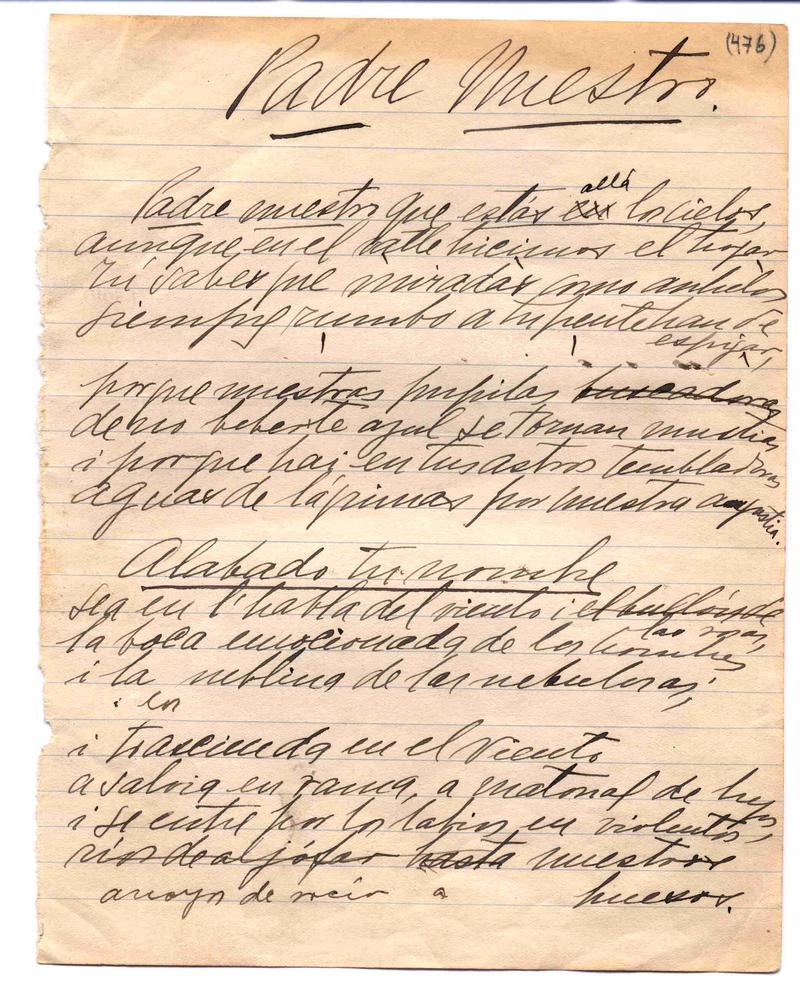 (476)
Padre Nuestro.
allá
Padre nuestro que estás los cielos,
aunque en el valle hicimos el hogar
Tú sabes que miradas como anhelos
siempre rumbo a tu han de
espigar,
porque nuestras pupilas buscadoras
de no beberte azul se tornan mustias
i porque hai en tus astros tembladores
aguas de lágrimas por nuestra angustia.
Alabado tu nombre
sea en l' habla del viento i el
las rosas,
la boca emocionada de los hombres
i la neblina de las nebulosas;
i en
i trascienda en el viento
a salvia en rama, a matorral de
i se entre por los labios en violentos
ríos de aljófar hasta nuestros
arroyos de rocío a huesos.